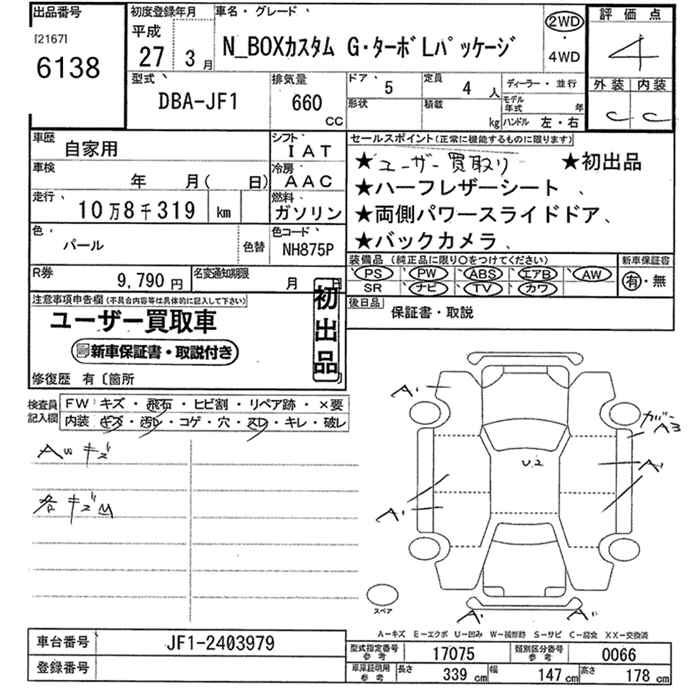 出品番号
[2167]
6138
初度登録年月
平成
27 3月
車名・グレード
N_BOXカスタム G・ターボLパッケージ
2WD
・
4WD
評価点
4
外装 内装
C C
型式
DBA-JF1
排気量
660
CC
ドア 5
形状
定員 4 人
積載 kg
ディーラー・並行
モデル年式 年
ハンドル 左・右
車歴
自家用
シフト
IAT
車検
年 月( 日)
冷房
AAC
走行
10万8千319 km
燃料
ガソリン
色
パール
色替
色コード
NH875P
R券
9,790円
名変通知期限
月
セールスポイント(正常に機能するものに限ります)
★ユーザー買取り ★初出品
★ハーフレザーシート 、
★両側パワースライドドア、
★バックカメラ 、
装備品(純正品に限り○をつけてください)
PS PW ABS エアB AW
SR ナビ TV カワ
新車保証書
有・無
後日品
保証書・取説
注意事項申告欄(不具合内容等は具体的に記入して下さい)
ユーザー買取車
新車保証書・取説付き
初出品
修復歴 有〔箇所
検査員記入欄
FW キズ・飛石・ヒビ割・リペア跡・×要
内装 キズ・汚レ・コゲ・穴・スレ・キレ・破レ
A キズ
各キズ凹
A
ガー
A3
U.2
A
A
A
A
スペア
A-キズ E-エクボ U-凹み W-補修跡 S-サビ C-腐食 XX-交換済
車台番号
JF1-2403979
登録番号
型式指定番号
参考
17075
類別区分番号
参考
0066
車庫証明用
参考
長さ 339 cm
幅 147 cm
高さ 178 cm